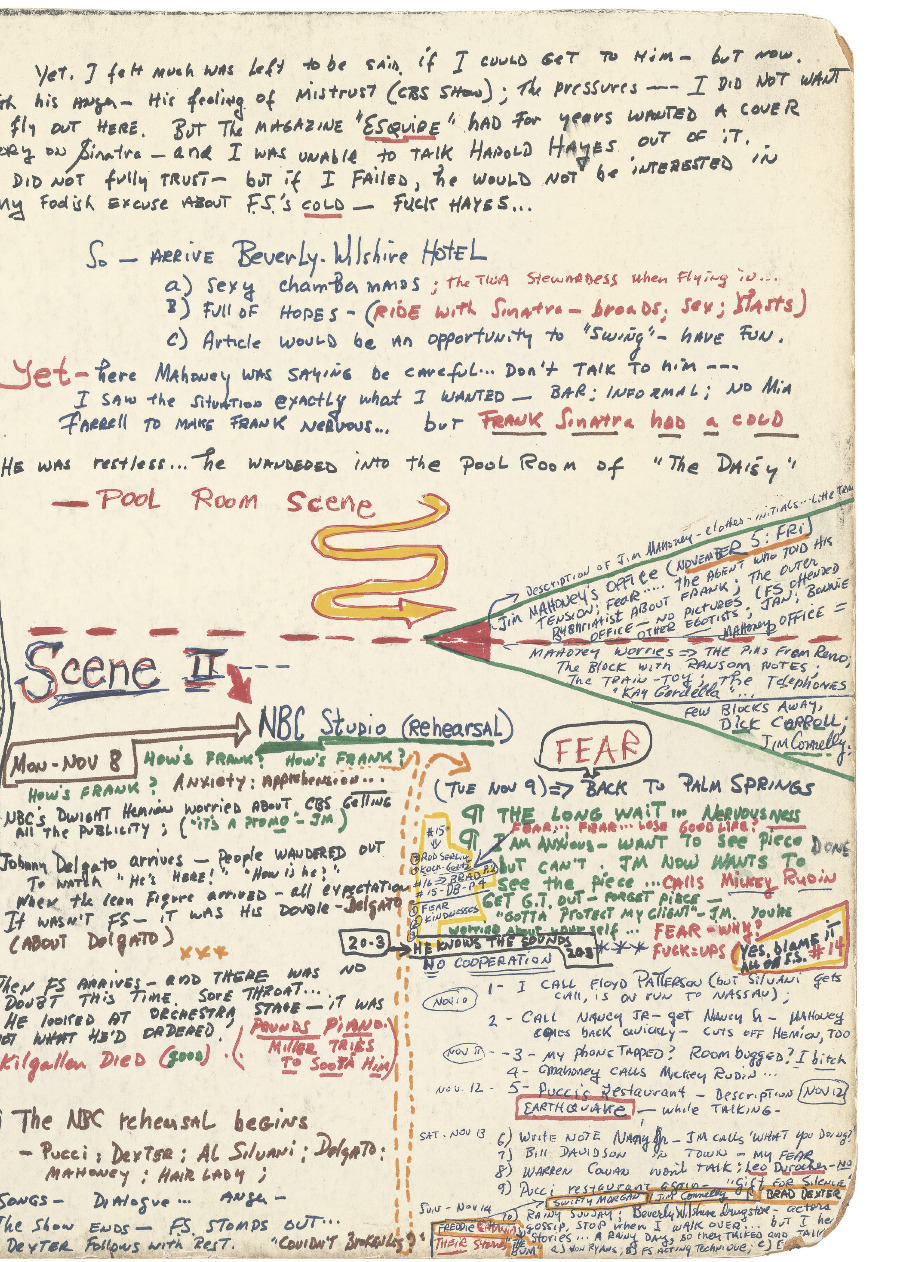 Yet. I felt much was left to be said. if I could get to Him — but now.
his anger — His feeling of Mistrust (CBS Show); the pressures — I DID NOT WANT
fly OUT HERE. BUT The MAGAZINE "ESQUIRE" HAD For years WANTED A COVER
on Sinatra — and I WAS UNABLE to TALK HAROLD HAYES OUT OF IT.
DID NOT fully TRUST — but if I FAILED, he WOULD NOT be INTERESTED in
my Foolish Excuse ABOUT F.S.'s COLD — FUCK HAYES...
So — ARRIVE Beverly-Wilshire HOTEL
a) Sexy chambermaids; the TWA Stewardess when Flying in...
B) FULL OF HOPES — (RIDE with Sinatra — broads; sex; Blasts)
c) Article WOULD be AN opportunity to "Swing" — HAVE FUN.
Yet — here Mahoney was SAYING be careful... Don't TALK TO him ---
I SAW the Situation exactly what I WANTED — BAR; INFORMAL; NO Mia
FARRELL TO MAKE FRANK NERVOUS... but FRANK Sinatra had a COLD
HE was restless... he WANDERED INTO the POOL ROOM of "The DAISY"
— POOL ROOM Scene
Description of Jim Mahoney — clothes — initials... Little
Jim MAHONEY'S OFFICE (NOVEMBER 5: FRI)
TENSION; FEAR.... the AGENT who TOLD HIS
PSYCHIATRIST ABOUT FRANK; The OUTER
OFFICE — NO PICTURES (FS OFFENDED
OTHER EGOTISTS; JAN; BONNIE
Mahoney OFFICE =
MAHONEY WORRIES => THE PICS From Reno;
The Block with RANSOM NOTES;
The TRAIN - TOY; The Telephones
"Kay Gardella"...
Few Blocks Away,
DICK CARROLL;
Jim Connelly.
Scene II
NBC Studio (rehearsal)
MON - NOV 8
How's FRANK? How's FRANK?
How's FRANK? Anxiety; Apprehension...
NBC's DWIGHT HEMION WORRIED ABOUT CBS Getting
All the PUBLICITY; ("IT'S A PROMO" - JM)
Johnny Delgato arrives — People WANDERED OUT
To WATCH "He's HERE!" "How is he?"
When the lean Figure arrived — all expectation
IT WASN'T FS — IT WAS HIS DOUBLE — Delgato
(ABOUT DelGATO)
XXX
Then FS ARRIVES — AND THERE WAS NO
DOUBT THIS TIME. SORE THROAT...
HE looked AT ORCHESTRA STAGE — IT WAS
NOT WHAT HE'D ORDERED!
(POUNDS PIANO.
MILLER TRIES
TO SOOTH Him)
Kilgallen DIED (good).
The NBC rehearsal begins
— Pucci; DEXTER; Al Silvani; Delgato;
MAHONEY; HAIR LADY;
SONGS — DIALOGUE... ANGER —
The Show ENDS — F.S. STOMPS OUT...
DEXTER Follows with REST. "COULDN'T
FEAR
(TUE NOV 9) => BACK TO PALM SPRINGS
¶ THE LONG WAIT ... NERVOUSNESS
FEAR... FEAR... LOSE GOOD LIFE?
¶ I AM ANXIOUS — WANT TO SEE PIECE DONE
BUT CAN'T. JM NOW WANTS TO
See the piece ... CALLS Mickey RUDIN
GET G.T. OUT — FORGET PIECE —
"GOTTA PROTECT MY CLIENT" — JM. You're
worried about yourself...
FEAR — WHY?
FUCK=UPS
Yes, blame it
All on F.S. #14
#15
ROD SERLING
#16 => BRAD
#15 - DB - P.4
FEAR
KINDNESSES
20-3
HE KNOWS THE SOUNDS 20-3 ***
NO COOPERATION
NOV 10
1 - I CALL FLOYD PATTERSON (but Silvani gets
CALL, IS ON RUN TO NASSAU);
2 - CALL NANCY JR — get NANCY Sr — MAHONEY
comes BACK quickly — CUTS OFF HEMION, TOO
NOV 11
3 - MY phone TAPPED? Room bugged? I bitch
4 - Mahoney CALLS Mickey RUDIN...
NOV. 12 -
5 - Pucci's Restaurant — Description (NOV 12)
EARTHQUAKE — while TALKING —
SAT. NOV 13
6) WRITE NOTE Nancy Jr — JM CALLS "WHAT YOU DOING?"
7) BILL DAVIDSON in TOWN — my FEAR
8) WARREN COWAN won't TALK; Leo Durocher — NO
9) Pucci restaurant again — "Gift for Silence
SWIFTY MORGAN Jim Connelly BRAD DEXTER
SUN - NOV 14
10) RAINY SUNDAY; Beverly Wilshire Drugstore — actors
GOSSIP, STOP when I WALK OVER... but I hear
Stories... A RAINY DAY, SO they TALKED and TALK
FREDDIE
THEIR STORIES
a) HON RYANS; B) FS ACTING TECHNIQUE; C)